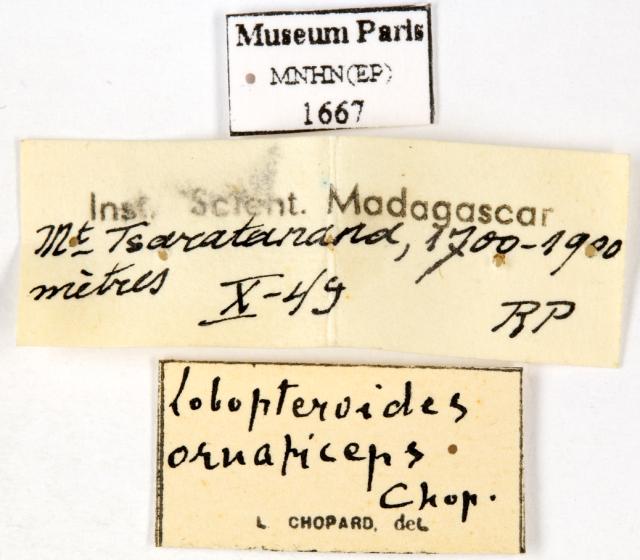 Museum Paris
MNHN(EP)
1667
Inst. Scient. Madagascar
Mt Tsaratanana, 1700-1900
mètres X-49
RP
Lobopteroides
ornaticeps
Chop.
L. CHOPARD, det.